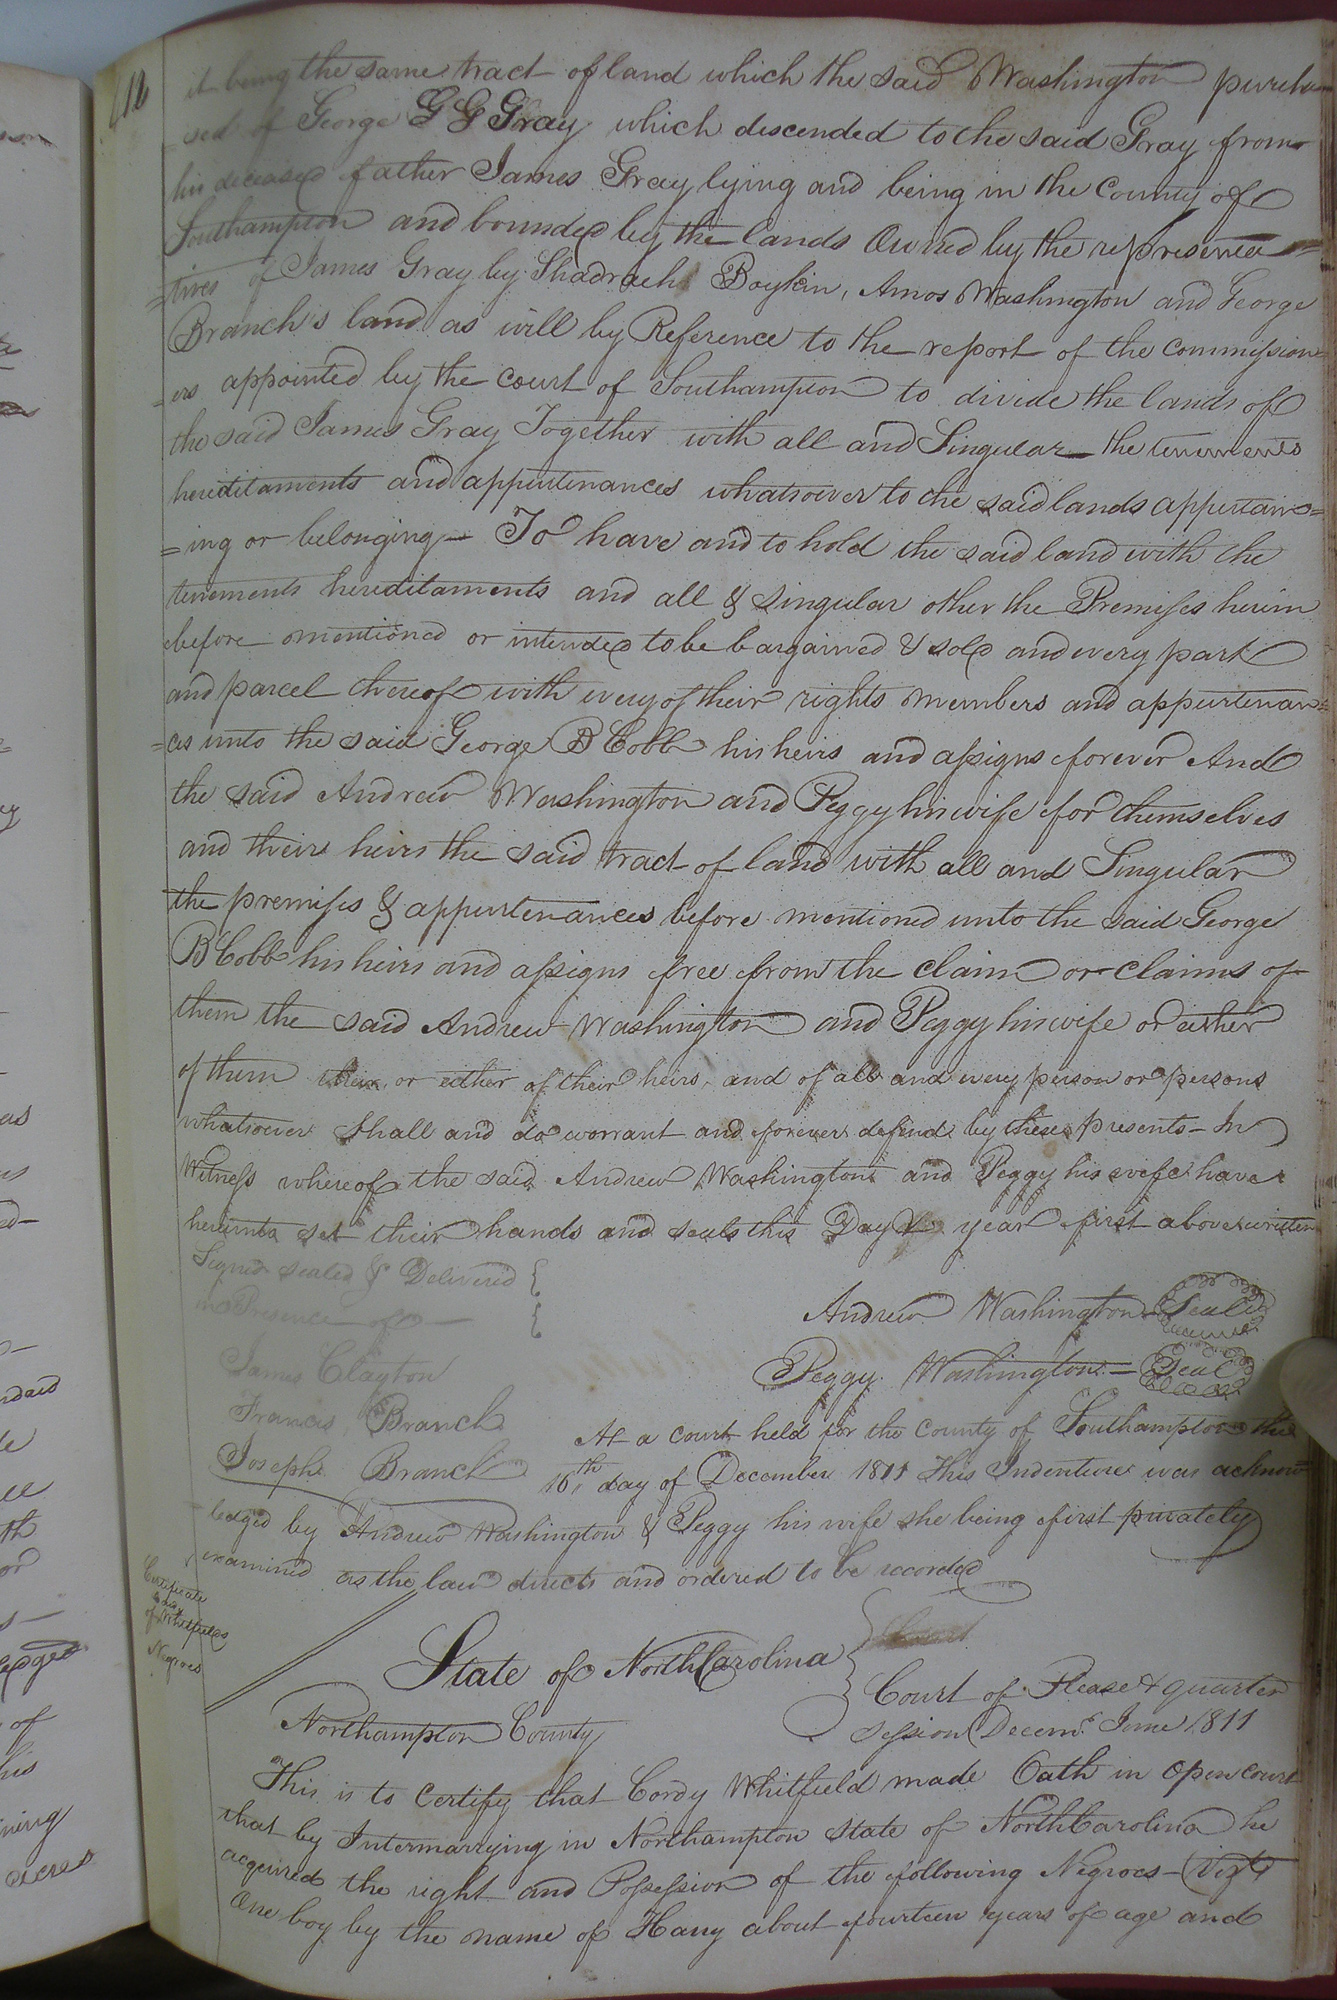 it being the same tract of land which the said Washington purcha
sed of George G G Gray which descended to the said Gray from
his deceased father James Gray lying and being in the County of
Southampton and bounded by the lands Owned by the represenea=
=tives of James Gray by Shadrach Boykin, Amos Washington and George
Branch's land as will by Reference to the report of the commission=
=ers appointed by the court of Southampton to divide the lands of
the said James Gray Together with all and Singular the tenements
hereditaments and appurtenances whatsoever to the said lands appurtain=
=ing or belonging – To have and to hold the said land with the
tenements hereditaments and all & singular other the Premises herein
before mentioned or intended to be bargained & sold and every part
and parcel thereof with every of their rights members and appurtenan=
=ces unto the said George B Cobb his heirs and assigns forever And
the said Andrew Washington and Peggy his wife for themselves
and their heirs the said tract of land with all and Singular
the premises & appurtenances before mentioned unto the said George
B Cobb his heirs and assigns free from the claim or claims of
them the said Andrew Washington and Peggy his wife or either
of them their or either of their heirs, and of all and every person or persons
whatsoever shall and do warrant and forever defend by these presents – In
Witness whereof the said Andrew Washington and Peggy his wife have
hereunto set their hands and seals this Day & year first above written
Signed sealed & Delivered
in Presence of –
Andrew Washington Seal
James Clayton
Peggy Washington – Seal
Francis Branch
Joseph Branch
At a court held for the county of Southampton the
16th day of December 1811 This Indenture was acknow=
ledged by Andrew Washington & Peggy his wife she being first privately
examined as the law directs and ordered to be recorded
Certificate
of Whitfields
Negroes
State of North Carolina
Northampton County
Court of Pleas & quarter
session Decemr. Jerme 1811
This is to certify that Cordy Whitfield made Oath in open court
that by Intermarrying in Northampton State of North Carolina he
acquired the right and Possession of the following Negroes – Vizt
One boy by the name of Harry about fourteen years of age and